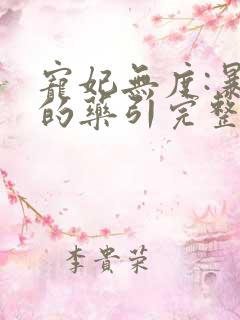 寵妃無度:暴
的藥引完整
李貴榮